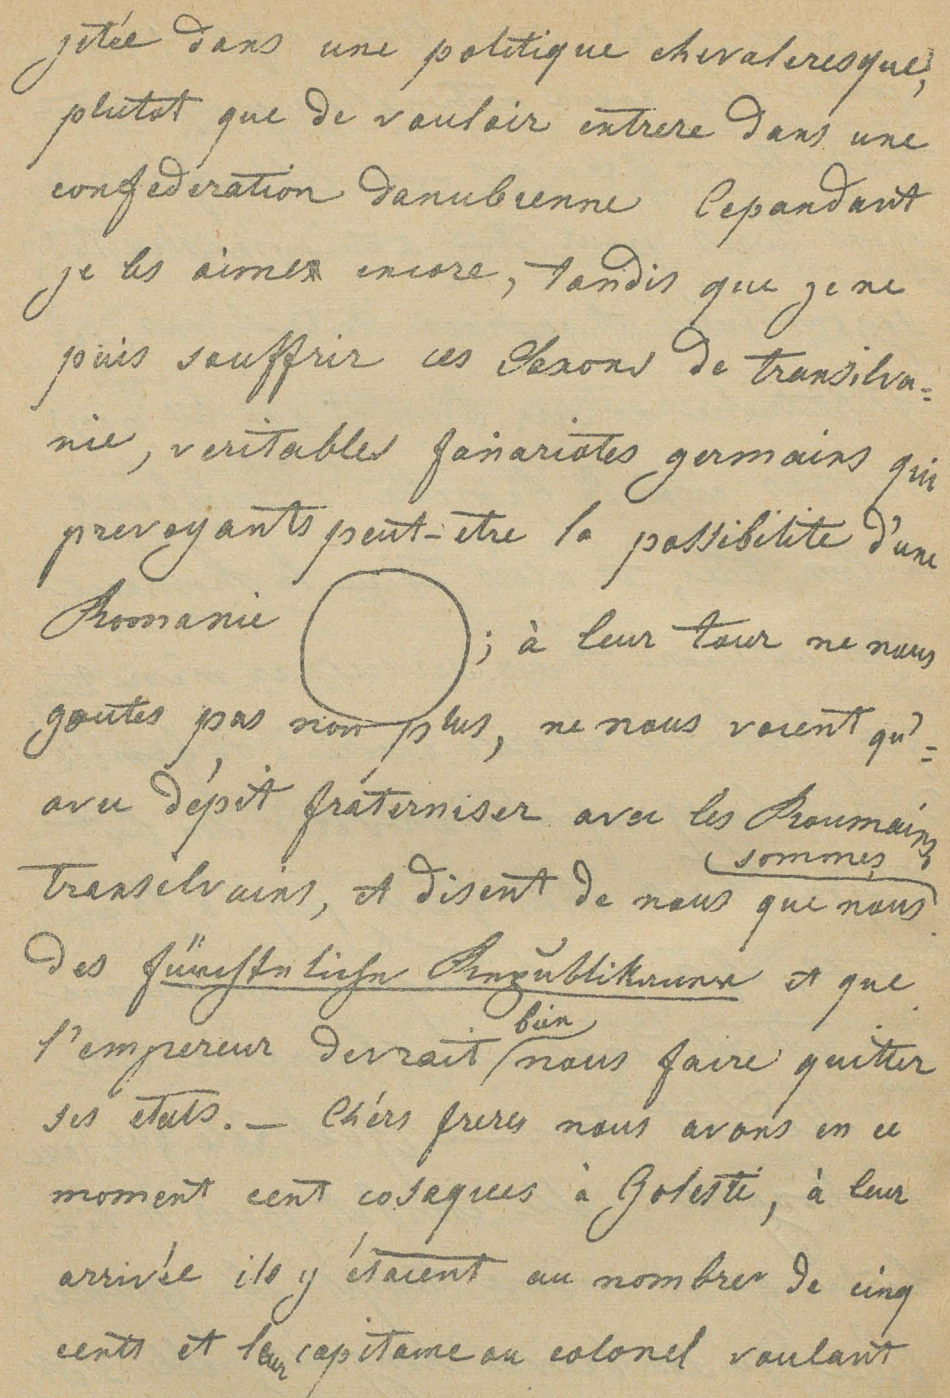 jetée dans une politique chevaleresque,
plutot que de vouloir entrere dans une
confederation danubienne Cepandant
je les aime encore, tandis que je ne
puis souffrir ces Saxons de transilva=
nie, veritables fanariotes germains qui
prevoyants peut-etre la possibilite d'une
Romanie ; à leur tour ne nous
goutes pas non plus, ne nous voient qu'=
avec dépit fraterniser avec les Roumains
sommes
transilvains, et disent de nous que nous
des et que
bien
l'empereur devrait nous faire quitter
ses etats. — Chérs freres nous avons en ce
moment cent cosaques à Golesti, à leur
arrivée ils y étaient au nombre de cinq
cents et leur capitaine ou colonel voulant